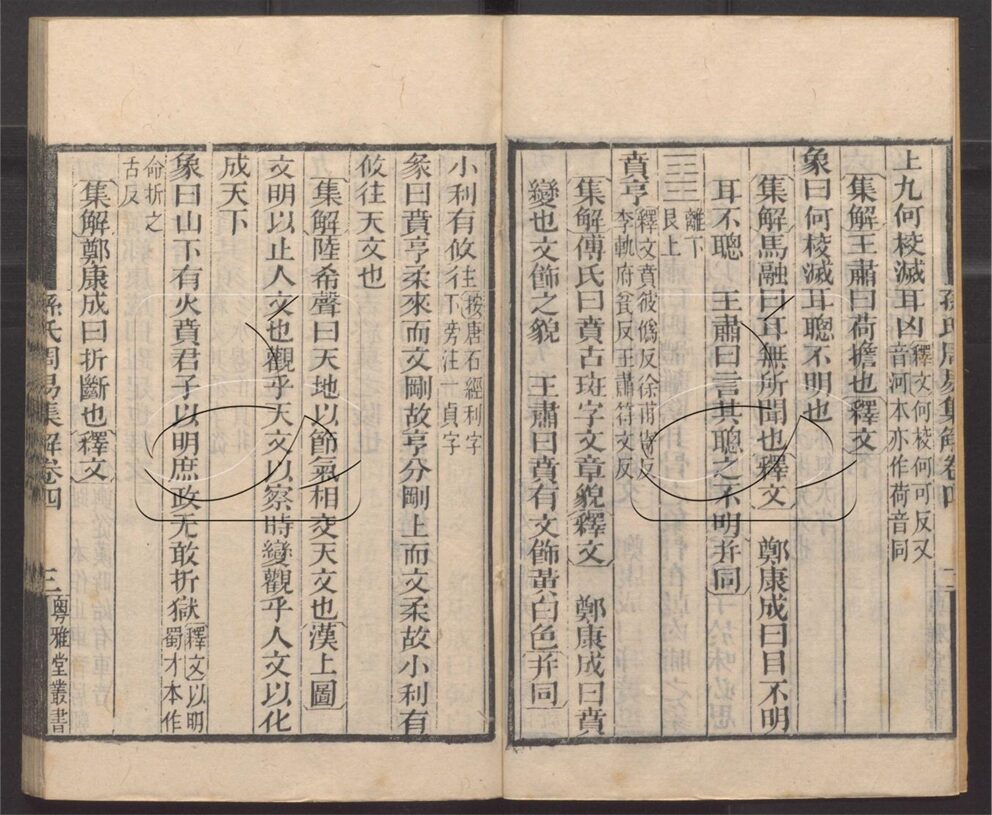 上九何校滅耳凶釋文何校何可反又音河本亦作荷音同
集解王肅曰荷擔也釋文
象曰何校滅耳聰不明也
集解馬融曰耳無所聞也釋文 鄭康成曰目不明
耳不聰 王肅曰言其聰之不明并同
離下艮上
賁亨釋文賁彼僞反徐甫寄反李軌府瓫反王肅符文反
集解傅氏曰賁古斑字文章貌釋文 鄭康成曰賁
變也文飾之貌 王肅曰賁有文飾黃白色并同
孫氏周易集解卷四 二
小利有攸往按唐石經利字下旁注一貞字
彖曰賁亨柔來而文剛故亨分剛上而文柔故小利有
攸往天文也
集解陸希聲曰天地以節氣相交天文也漢上圖
文明以止人文也觀乎天文以察時變觀乎人文以化
成天下
象曰山下有火賁君子以明庶政无敢折獄釋文以明蜀才本作
命折之舌反
集解鄭康成曰折斷也釋文
孫氏周易集解卷四 三 粵雅堂叢書